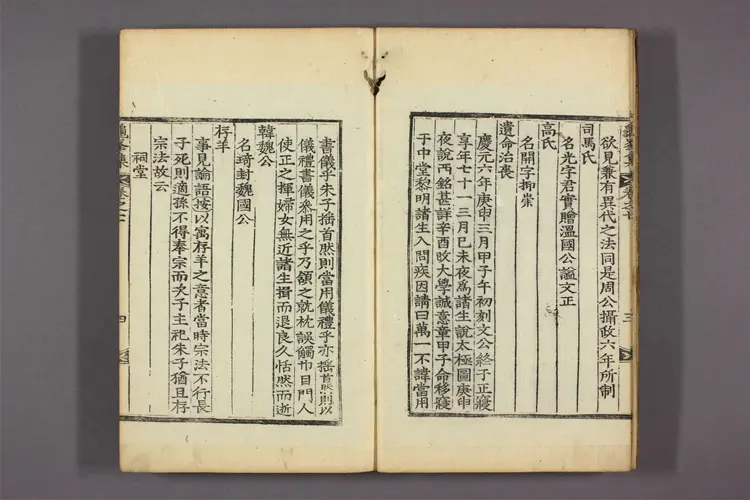 欲見兼有異代之法同是周公攝政六年所制
司馬氏
名光字君實贈溫國公謚文正
高氏
名閌字抑崇
遺命治喪
慶元六年庚申三月甲子午初刻文公終于正寢
享年七十一三月己未夜爲諸生說太極圖庚申
夜說西銘甚詳辛酉改大學誠意章甲子命移寢
于中堂黎明諸生入問疾因請曰萬一不諱當用
書儀乎朱子搖首然則當用儀禮乎亦搖首然則以
儀禮書儀參用之乎乃頷之就枕誤觸巾目門人
使正之揮婦女無近諸生揖而退良久恬然而逝
韓魏公
名琦封魏國公
牸羊
事見論語按以寓牸羊之意者當時宗法不行長
子死則適孫不得奉宗而次子主祀朱子猶且存
宗法故云
祠堂
三
四